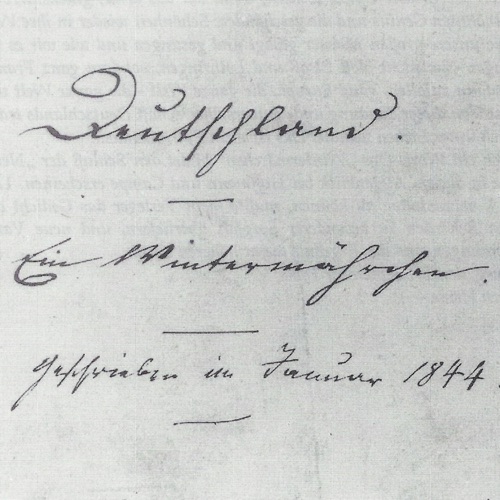 Deutschland.
Ein Wintermährchen.
Geschrieben im Januar 1844.